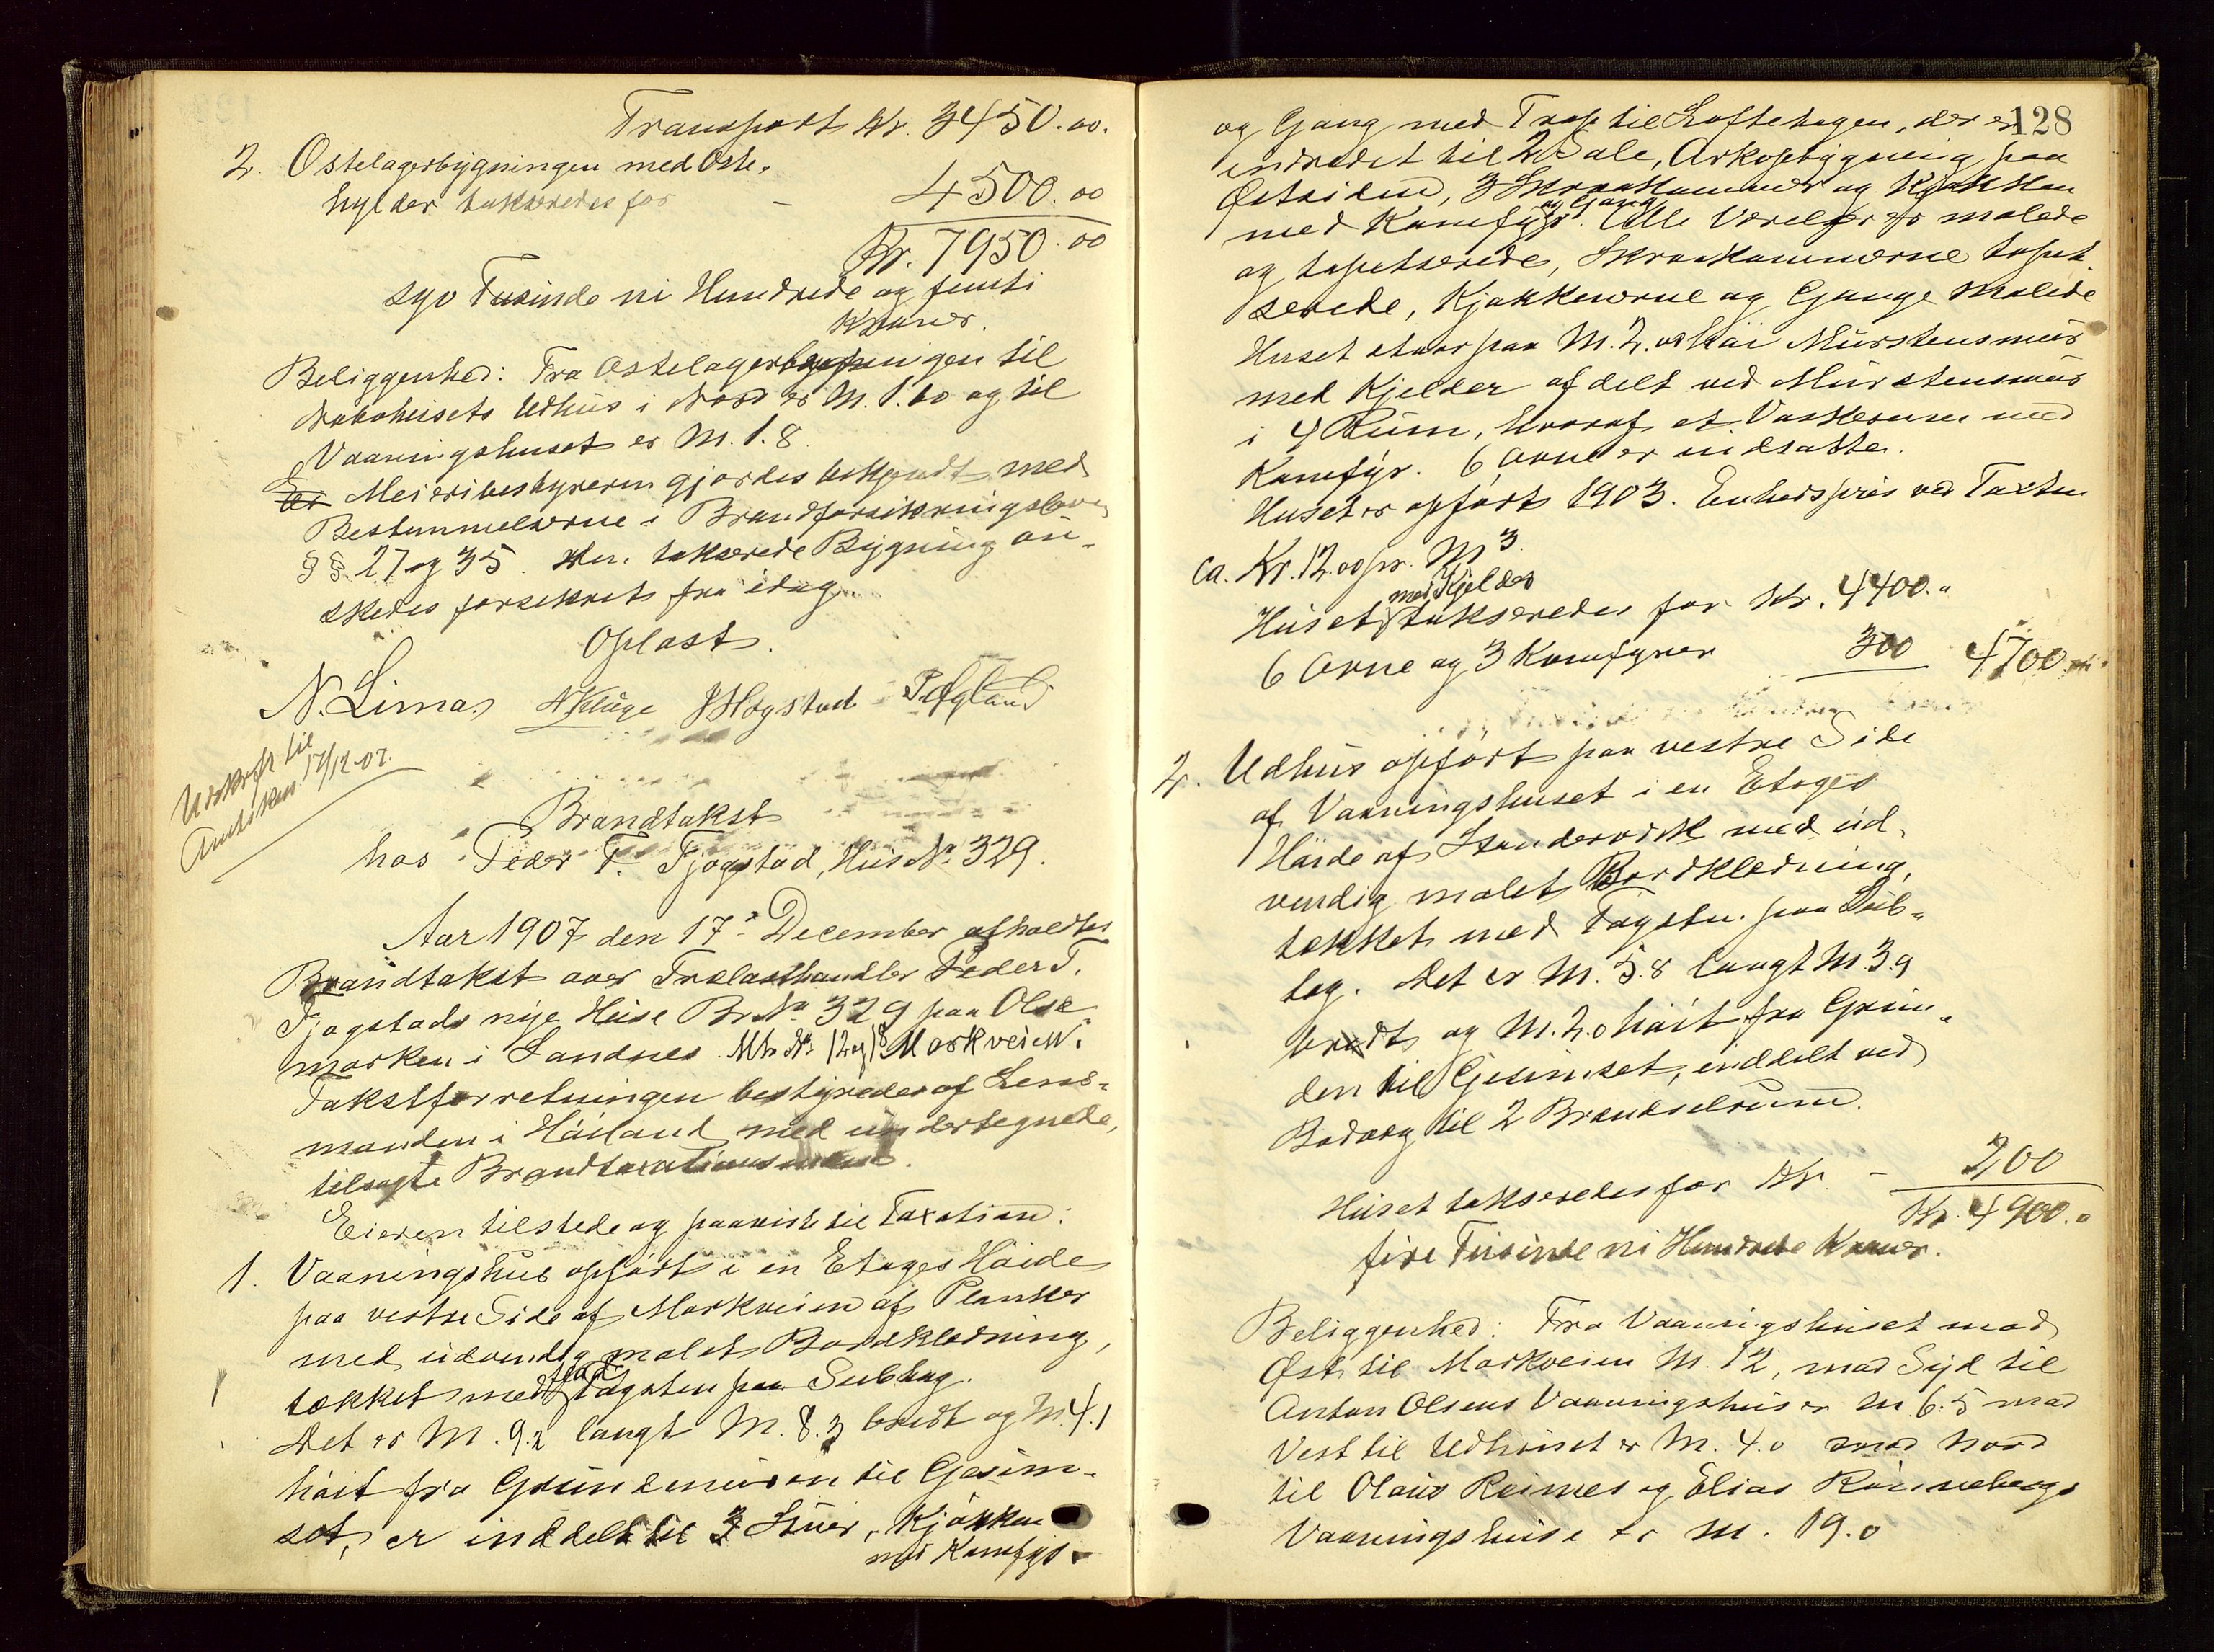 Transport Kr. 3450.00.
2. Ostelagerbygningen med Oste-
hylder takseredes for - 4500.00
Kr. 7950.00
syv Tusinde ni Hundrede og femti
Kroner.
Beliggenhed: Fra Ostelagerbygningen til
Nabohusets Udhus i Nord er M. 1.60 og til
Vaaningshuset er M. 1.8.
Meieribestyreren gjordes bekjendt med
Bestemmelserne i Brandforsikringsloven
§§ 27 og 35. Den takserede Bygning øn-
skedes forsekret fra idag.
Oplæst.
N. Lima A Kluge Høgstad
Udskrift til
17/12-07.
Brandtakst
hos Peder T. Fjogstad, Hus No 329.
Aar 1907 den 17de December afholdtes
Brandtakst over Trælasthandler Peder T.
Fjogstads nye Huse Br. No 329 paa Olse
marken i Sandnes. Mtr No 12 og 18 Markveien.
Takstforretningen bestyredes af Lens-
manden i Høiland med undertegnede,
tilsagte Brandtaxationsmænd.
Eieren tilstede og paaviste til Taxation:
1. Vaaningshus opført i en Etages Høide
paa vestre Side af Markveien af Planker
med udvendig malet Bordklædning,
tækket med Tagsten paa Subtag.
Det er M. 9.2 langt M. 8.3 bredt og M. 4.1
høit fra Grundmuren til Gesim-
set, er inddelt til 3 Stuer, Kjøkken
med Komfyr
128
og Gang med Trap til Loftetagen, der er
indredet til 2 Sale, Arkopbygning paa
Østsiden, 3 Skraakammer og Kjøkken
og Gang
med Komfyr. Alle Værelser er malede
og tapetserede, Skraakammerne tapet-
serede, Kjøkkenerne og Gange malede
Huset staar paa M. 2.00 høi Murstensmur
med Kjelder afdelt ved Murstensmur
i 4 Rum, hvoraf et Vaskerum med
Komfyr. 6 Ovne er indsatte.
Huset er opført 1903. Enhedspris ved Taxten
ca. Kr. 12.00 pr. M3
med Kjelder
Huset takseredes for Kr. 4400.-
6 Ovne og 3 Komfyrer 300 4700
2. Udhus opført paa vestre Side
af Vaaningshuset i en Etages
Høide af Standerværk med ud-
vendig malet Bordklædning,
tækket med Tagsten paa Sub-
tag. Det er M. 5.8 langt M. 3.9
bredt og M. 2.0 høit fra Grun-
den til Gesimset, inddelt ved
Bordvæg til 2 Brændselrum.
Huset takseredes for Kr. - 200
Kr. 4900.-
fire Tusinde ni Hundrede Kroner.
Beliggenhed: Fra Vaaningshuset mod
Øst til Markveien M. 12, mod Syd til
Anton Olsens Vaaningshus er M. 6.5 mod
Vest til Udhuset er M. 4.0 mod Nord
til Olaus Reimes og Elias Rønnebergs
Vaaningshuse er M. 19.0